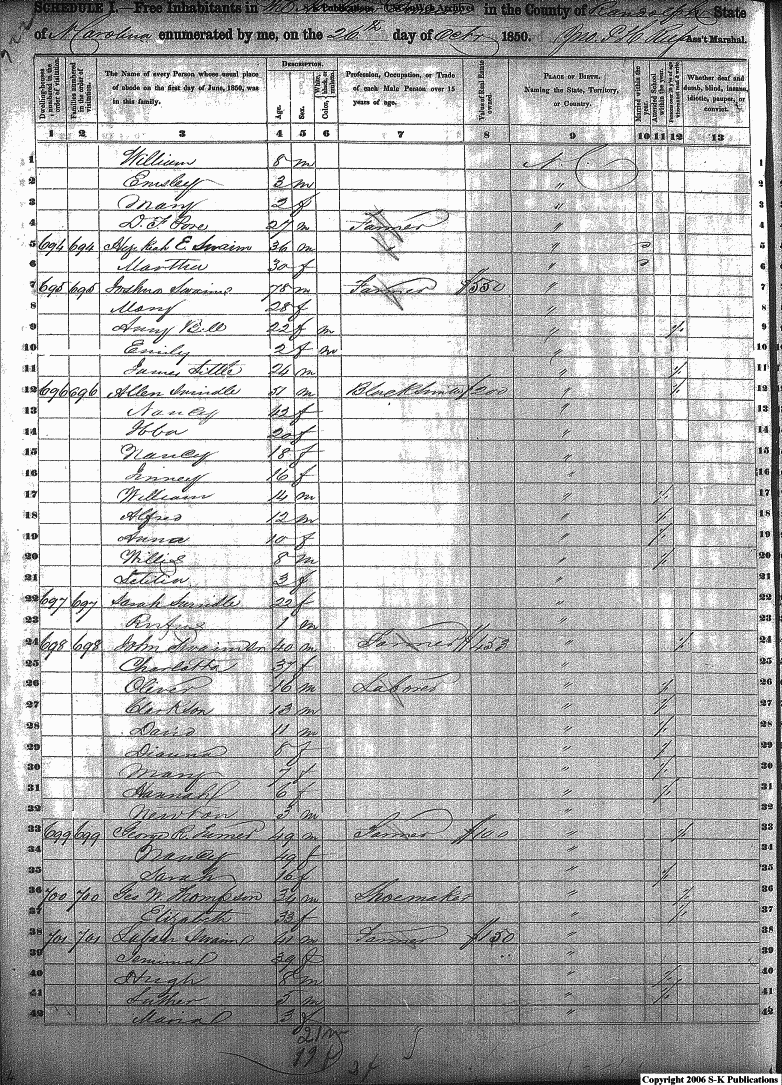 SCHEDULE I.—Free Inhabitants in in the County of Randolph State
of N Carolina enumerated by me, on the 26th day of Octr 1850. Ass't Marshal.
Dwelling-houses numbered in the order of visitation.
Families numbered in the order of visitation.
The Name of every Person whose usual place of abode on the first day of June, 1850, was in this family.
DESCRIPTION.
Age.
Sex.
Color, White, black, or mulatto.
Profession, Occupation, or Trade of each Male Person over 15 years of age.
Value of Real Estate owned.
PLACE OF BIRTH. Naming the State, Territory, or Country.
Married within the year.
Attended School within the year.
Whether deaf and dumb, blind, insane, idiotic, pauper, or convict.
1 2 3 4 5 6 7 8 9 10 11 12 13
1 William 8 m N. C. 1
2 Emsley 3 m " 2
3 Mary 2 f " 3
4 27 m Farmer " 4
5 694 694 E. Swaim 36 m " 5
6 Martha 30 f " 6
7 695 695 Joshua Swaim 78 m Farmer $550 " 7
8 Mary 28 f " 8
9 Anny Bell 22 f m " / 9
10 Emily 2 f m " 10
11 James Little 24 m " / 11
12 696 696 Allen Swindle 51 m Blacksmith $200 " / 12
13 Nancy 42 f " 13
14 20 f " 14
15 Nancy 18 f " 15
16 Jinney 16 f " 16
17 William 14 m " / 17
18 Alfred 12 m " / 18
19 Anna 10 f " / 19
20 Willis 8 m " / 20
21 Letitia 3 f " 21
22 697 697 Sarah Swindle 22 f " 22
23 Rufus 1 m " 23
24 698 698 John Swaim 40 m Farmer $153 " / 24
25 Charlotte 37 f " 25
26 Oliver 16 m Laborer " / 26
27 Clarkson 13 m " / 27
28 David 11 m " / 28
29 Dianna 8 f " / 29
30 Mary 7 f " / 30
31 Hannah 6 f " / 31
32 Newton 3 m " 32
33 699 699 George R. Turner 49 m Farmer $100 " / 33
34 Nancy 49 f " 34
35 Sarah 16 f " / 35
36 700 700 Geo W Thompson 34 m Shoemaker " / 36
37 Elizabeth 33 f " / 37
38 701 701 Swaim 41 m Farmer $150 " 38
39 39 f " 39
40 Hugh 8 m " / 40
41 Luther 5 m " / 41
42 Maria 3 f " 42
21 m
Copyright 2006 S-K Publications